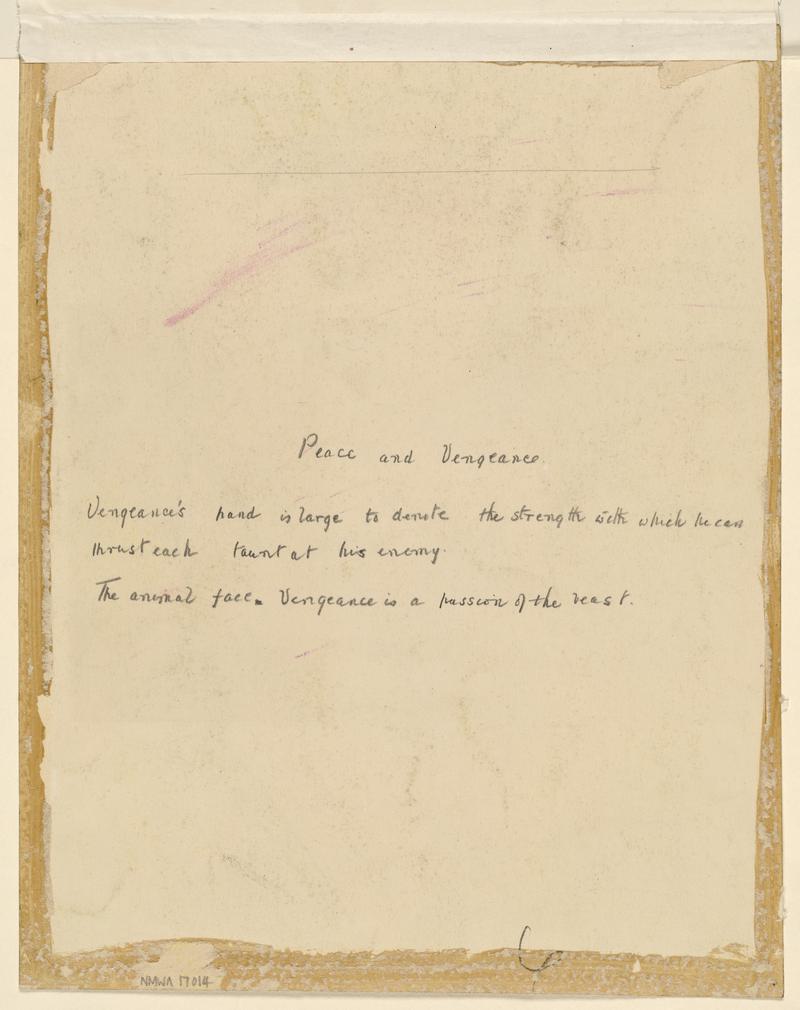 Peace and Vengeance.
Vengeance's hand is large to denote the strength with which he can
thrust each taunt at his enemy.
The animal face. Vengeance is a passion of the beast.
NMWA 17014